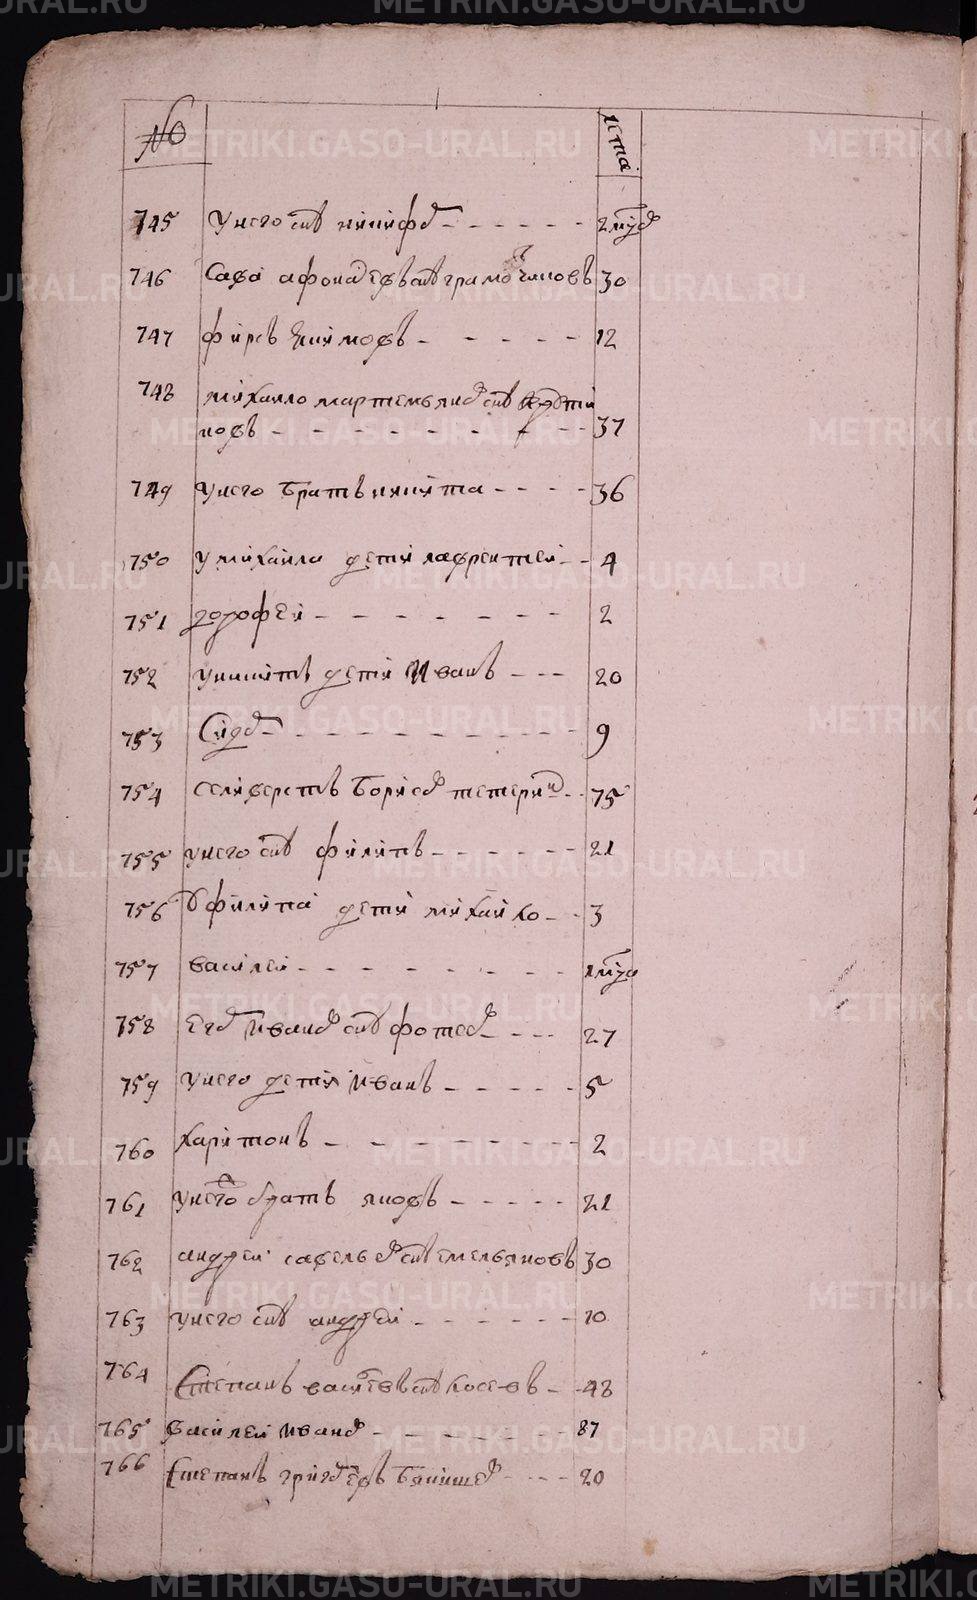 № лета
745 у него снъ никифоръ 2 мцов
746 Сава афонасьевъ снъ грамотчиковъ 30
747 фирсъ Екимовъ 12
748 михаило мартемьяновъ снъ
новъ 37
749 у него братъ никита 36
750 у михаила дети лаврентей 4
751 дорофеи 2
752 у никиты дети Иванъ 20
753 Сидоръ 9
754 селиверстъ борисовъ тетеринъ 75
755 у него снъ филипъ 21
756 у филипа дети михаило 3
757 василеи 1 мцъ
758 Егоръ Ивановъ снъ фотеевъ 27
759 у него дети Иванъ 5
760 харитонъ 2
761 у него братъ яковъ 21
762 андреи савельевъ снъ емельяновъ 30
763 у него снъ андреи 10
764 Степанъ васильевъ снъ косевъ 48
765 василеи Ивановъ 87
766 Степанъ григорьевъ 20
METRIKI.GASO-URAL.RU